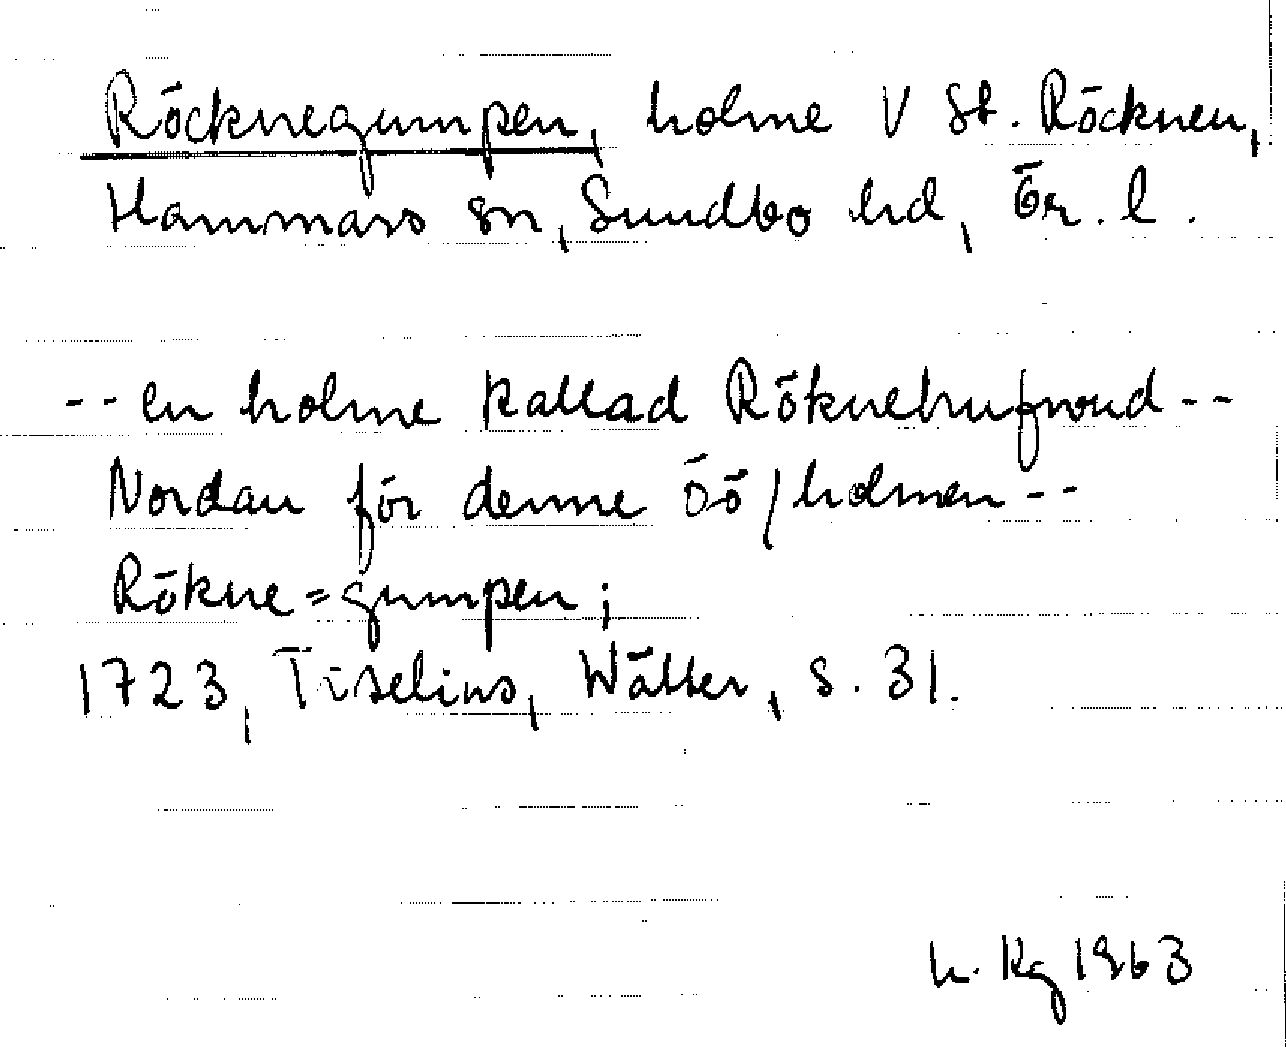 Röcknegumpen, holme V St. Röcknen,
Hammars sn, Sundbo hd, Ör. l.
-- en holme kallad Röknehufwud --
Nordan för denne öö/holmen --
Rökne=gumpen;
1723, Tiselius, Wätter, s. 31.
Kg 1963